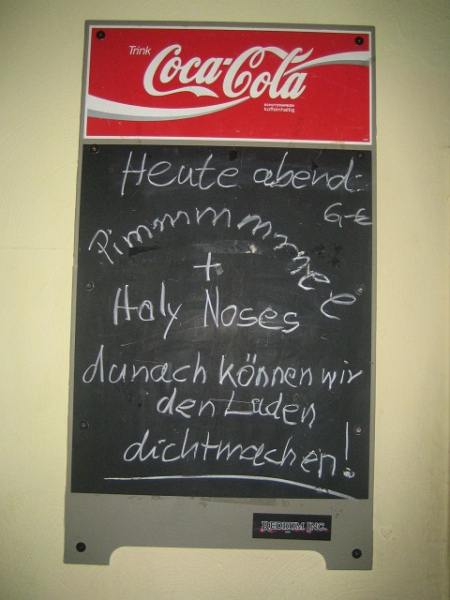 Trink
Coca-Cola
SCHUTZMARKEN
koffeinhaltig
Heute abend:
6,-€
Pimmmmmmmelee
+
Holy Noses
danach können wir
den Laden
dichtmachen!
REDRUM INC.